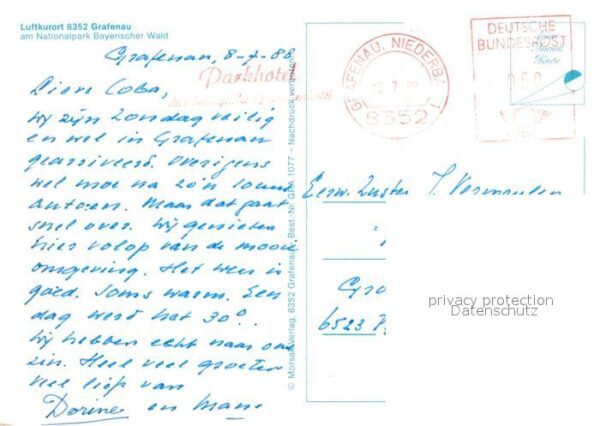 Luftkurort 8352 Grafenau
am Nationalpark Bayerischer Wald
Grafenau, 8-7-88
Parkhotel
Coba,
Wij zijn Zondag veilig
en wel in Grafenau
gearriveerd. Overigens
wel moe na zo'n
Maar dat gaat
snel over. Wij genieten
hier volop van de mooie
omgeving. Het weer is
goed. Soms warm. Een
dag werd het 30°.
Wij hebben echt naar ons
zin. Heel veel groeten
veel liefs van
Dorine en Mans
© Morsak Verlag, 8352 Grafenau, Best.-Nr. GRA 1077 - Nachdruck verboten
GRAFENAU, NIEDERBAY
8352
DEUTSCHE
BUNDESPOST
Eerw. Zuster J. Vermeulen
6523
privacy protection
Datenschutz